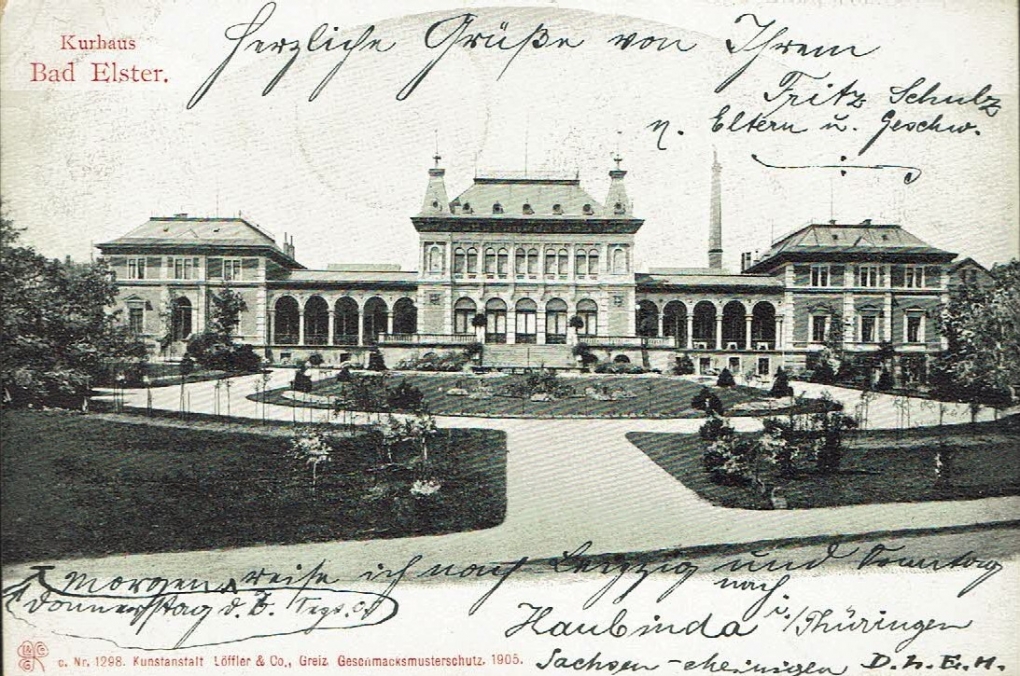 Kurhaus
Bad Elster.
Herzliche Grüße von Ihrem
Fritz Schulz
n. Eltern u. Geschw.
Morgen reise ich nach Leipzig und Sonntag
Donnerstag d. 3.
nach
Haubinda i/Thüringen
Sachsen-
c. Nr. 1298. Kunstanstalt Löffler & Co., Greiz. Geschmacksmusterschutz. 1905.